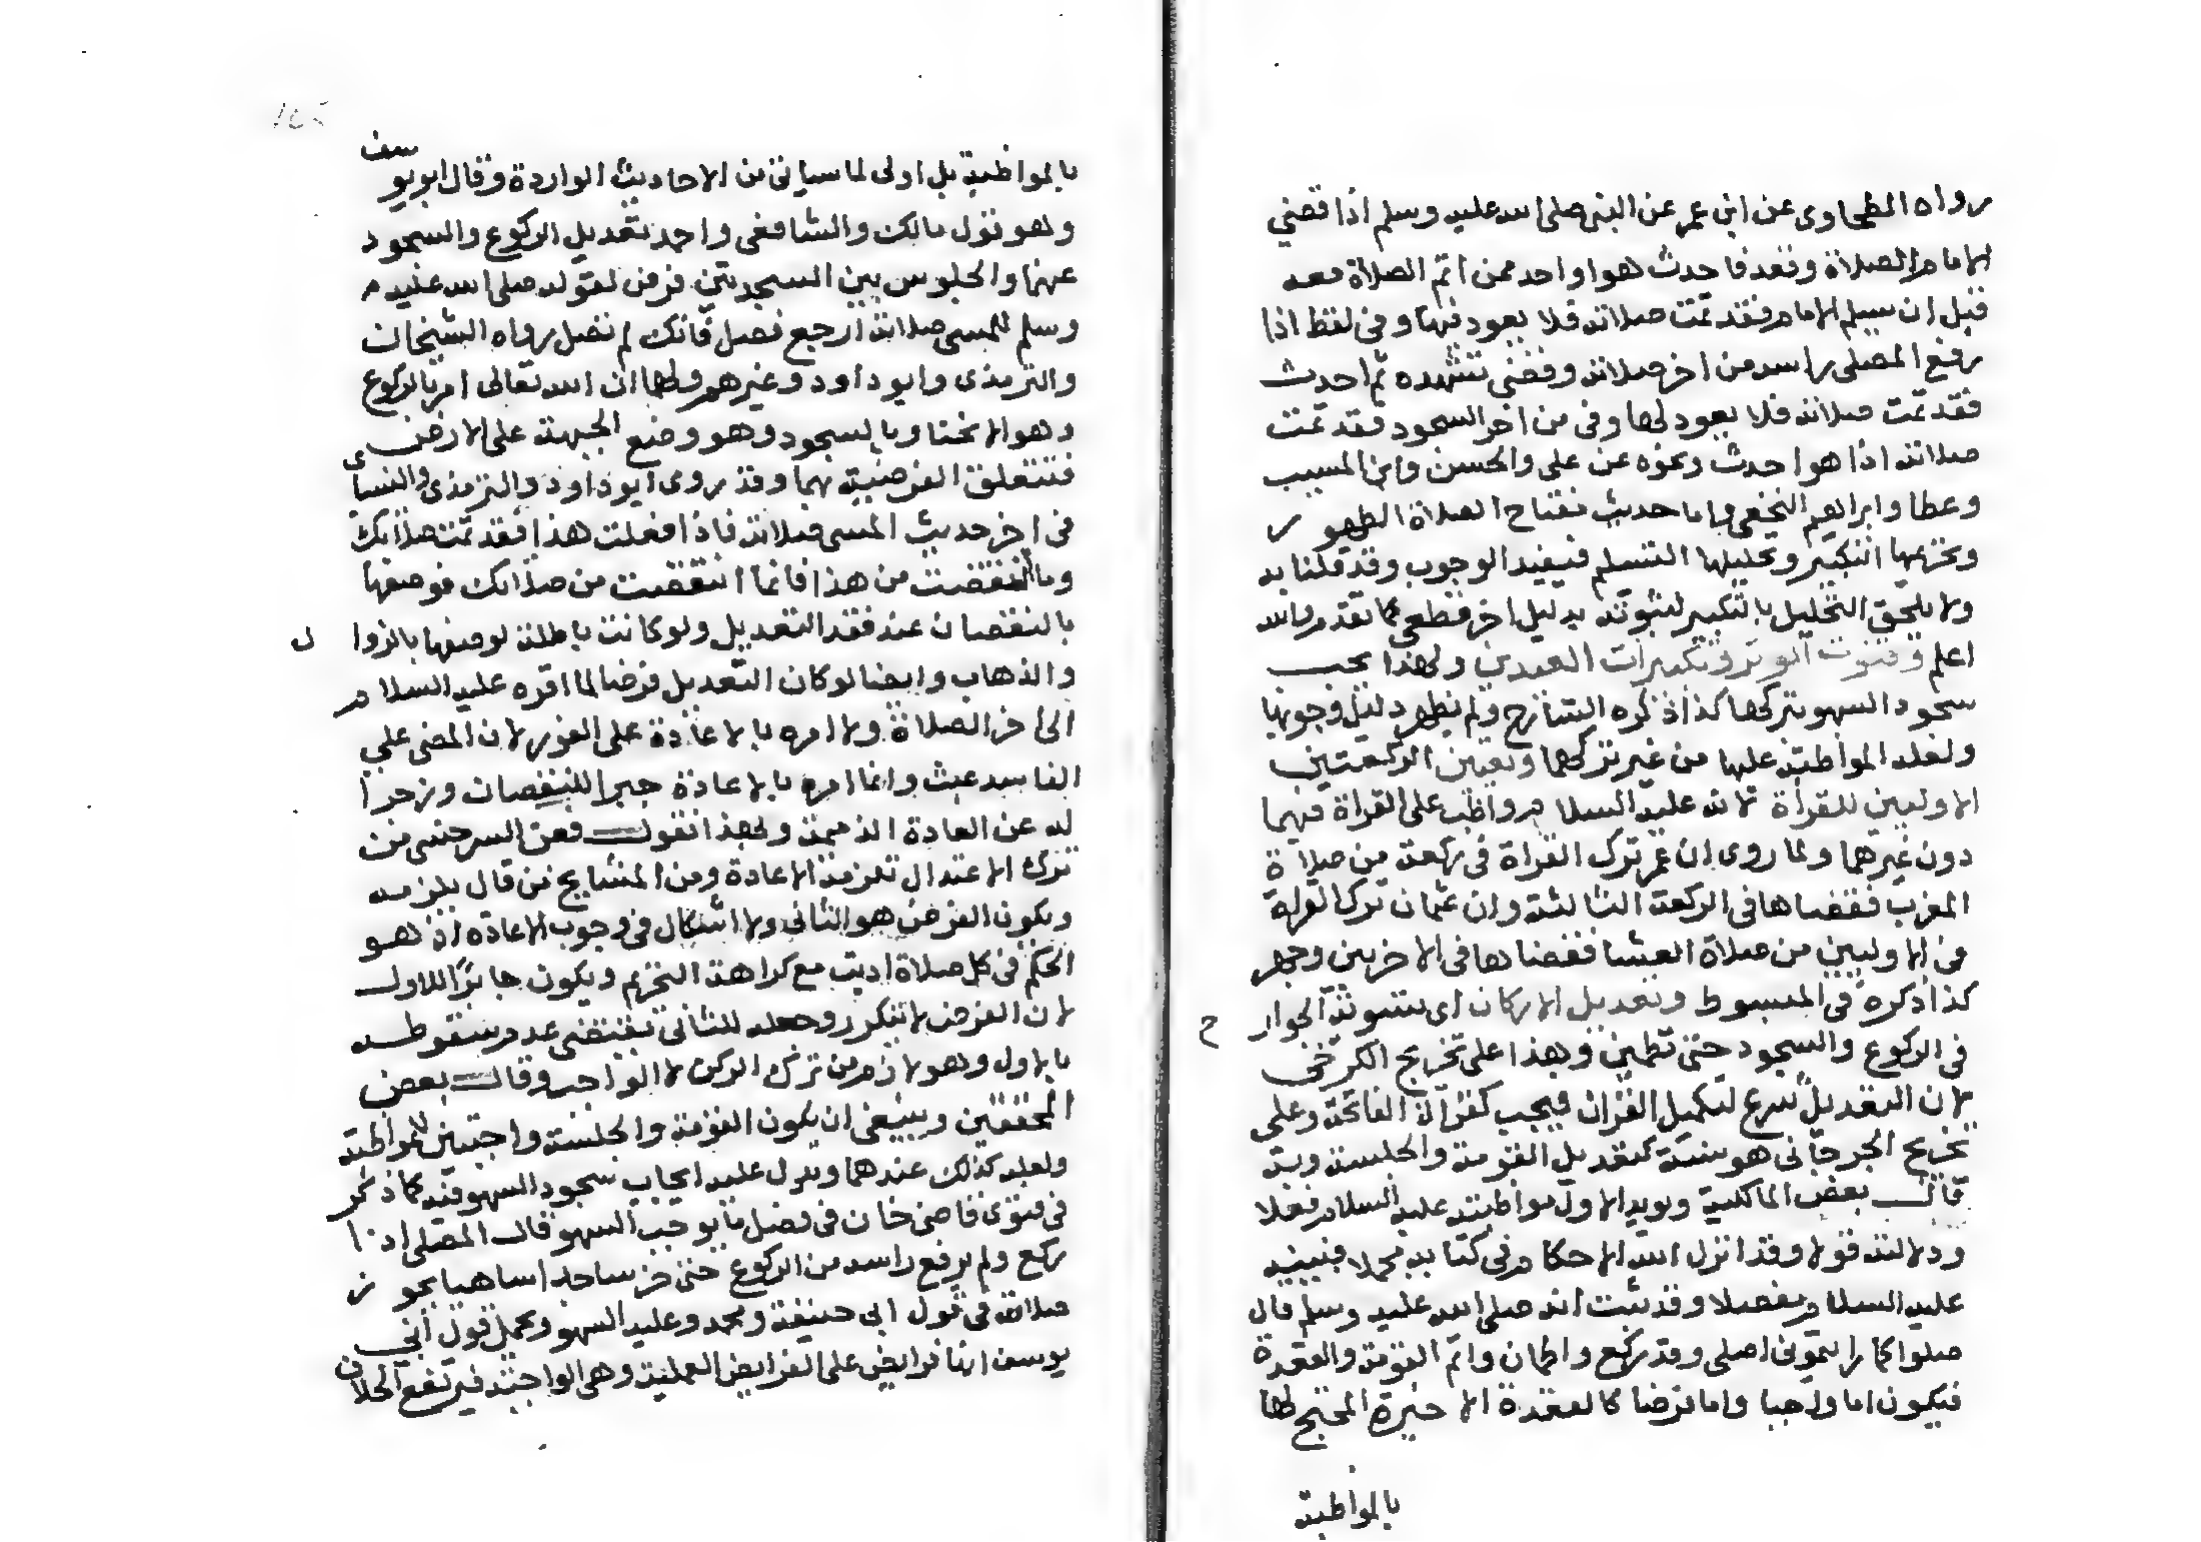 رواه الطحاوى عن ابن عمر عن النبى صلى الله عليه وسلم اذا قضي
الامام الصلاة وقعد فاحدث هو او احد ممن اتم الصلاة معه
قبل ان يسلم الامام فقد تمت صلاته فلا يعود فيها وفى لفظ اذا
رفع المصلى راسه من اخر صلاته وقضى تشهده ثم احدث
فقد تمت صلاته فلا يعود لها وفى من اخر السجود فقد تمت
صلاته اذا هو احدث ونحوه عن على والحسن وابن المسيب
وعطا وابراهيم النخعى واما حديث مفتاح الصلاة الطهور
وتحريمها التكبير وتحليلها التسليم فيفيد الوجوب وقد قلنا به
ولا يلحق التحليل بالتكبير لثبوته بدليل اخر قطعى كما تقدم والله
اعلم وقنوت الوتر وتكبيرات العيدين ولهذا يجب
سجود السهو بتركها كذا ذكره الشارح ولم يظهر دليل وجوبها
ولعله المواظبة عليها من غير تركهما وتعيين الركعتين
الاوليين للقراة لانه عليه السلام واظب على القراة فيهما
دون غيرهما ولما روى ان عمر ترك القراة فى ركعة من صلاة
المغرب فقضاها فى الركعة الثالثة وان عثمان ترك القراة
فى الاوليين من صلاة العشا فقضاها فى الاخريين وجهر
كذا ذكره فى المبسوط وتعديل الاركان اى تسوية الجوار ح
فى الركوع والسجود حتى تطمين وهذا على تخريج الكرخى
لان التعديل شرع لتكميل القران فيجب كقراة الفاتحة وعلى
تخريج الجرجانى هو سنة كتعديل القومة والجلسة وبه
قال بعض المالكية ويويد الاول مواظبته عليه السلام فعلا
ودلالته قولا وقد انزل الله الاحكام فى كتابه مجملا فبينه
عليه السلام مفصلا وقد ثبت انه صلى الله عليه وسلم قال
صلوا كما رايتمونى اصلى وقد ركع واطمان واتم القومة والقعدة
فيكون اما واجبا واما فرضا كالقعدة الاخيرة المحتج لها
بالمواظبة
بالمواظبة بل اولى لما سياتى من الاحاديث الواردة وقال ابو يوسف
وهو قول مالك والشافعى واحمد تعديل الركوع والسجود
عنهما والجلوس بين السجدتين فرض لقوله صلى الله عليه
وسلم للمسى صلاته ارجع فصل فانك لم تصل رواه الشيخان
والترمذى وابو داود وغيرهم ولهما ان الله تعالى امر بالركوع
وهو الانحنا وبالسجود وهو وضع الجبهة على الارض
فتتعلق الفرضية بهما وقد روى ابو داود والترمذى والنساى
فى اخر حديث المسى صلاته فاذا فعلت هذا فقد تمت صلاتك
وما انتقضت من هذا فانما انتقضت من صلاتك فوصفها
بالنقصان عند فقد التعديل ولو كانت باطلة لوصفها بالزوا ل
والذهاب وايضا لو كان التعديل فرضا لما اقره عليه السلام
الى اخر الصلاة ولا امره بالاعادة على الفور لان المضى على
الفاسد عبث وانما امره بالاعادة جبرا للنقصان وزجرا
له عن العادة الذميمة ولهذا نقول فعن السرخسى من
ترك الاعتدال تلزمه الاعادة ومن المشايخ من قال يلزمه
ويكون الفرض هو الثانى ولا اشكال فى وجوب الاعادة اذ هو
الحكم فى كل صلاة اديت مع كراهة التحريم ويكون جابرا للاول
لان الفرض لا يتكرر وجعله للثانى يقتضى عدم سقوطه
بالاول وهو لازم من ترك الركن لا الواجب وقال بعض
المحققين وينبغى ان يكون القومة والجلسة واجبتين للمواظبة
ولعله كذلك عندهما ويدل عليه ايجاب سجود السهو فيه كما ذكر
فى فتوى قاضى خان فى فصل ما يوجب السهو قال المصلى اذا
ركع ولم يرفع راسه من الركوع حتى خر ساجدا ساهيا يجوز
صلاته فى قول ابى حنيفة ومحمد وعليه السهو ويحمل قول ابى
يوسف انها فرايض على الفرايض العملية وهى الواجبة فيرتفع الخلاف